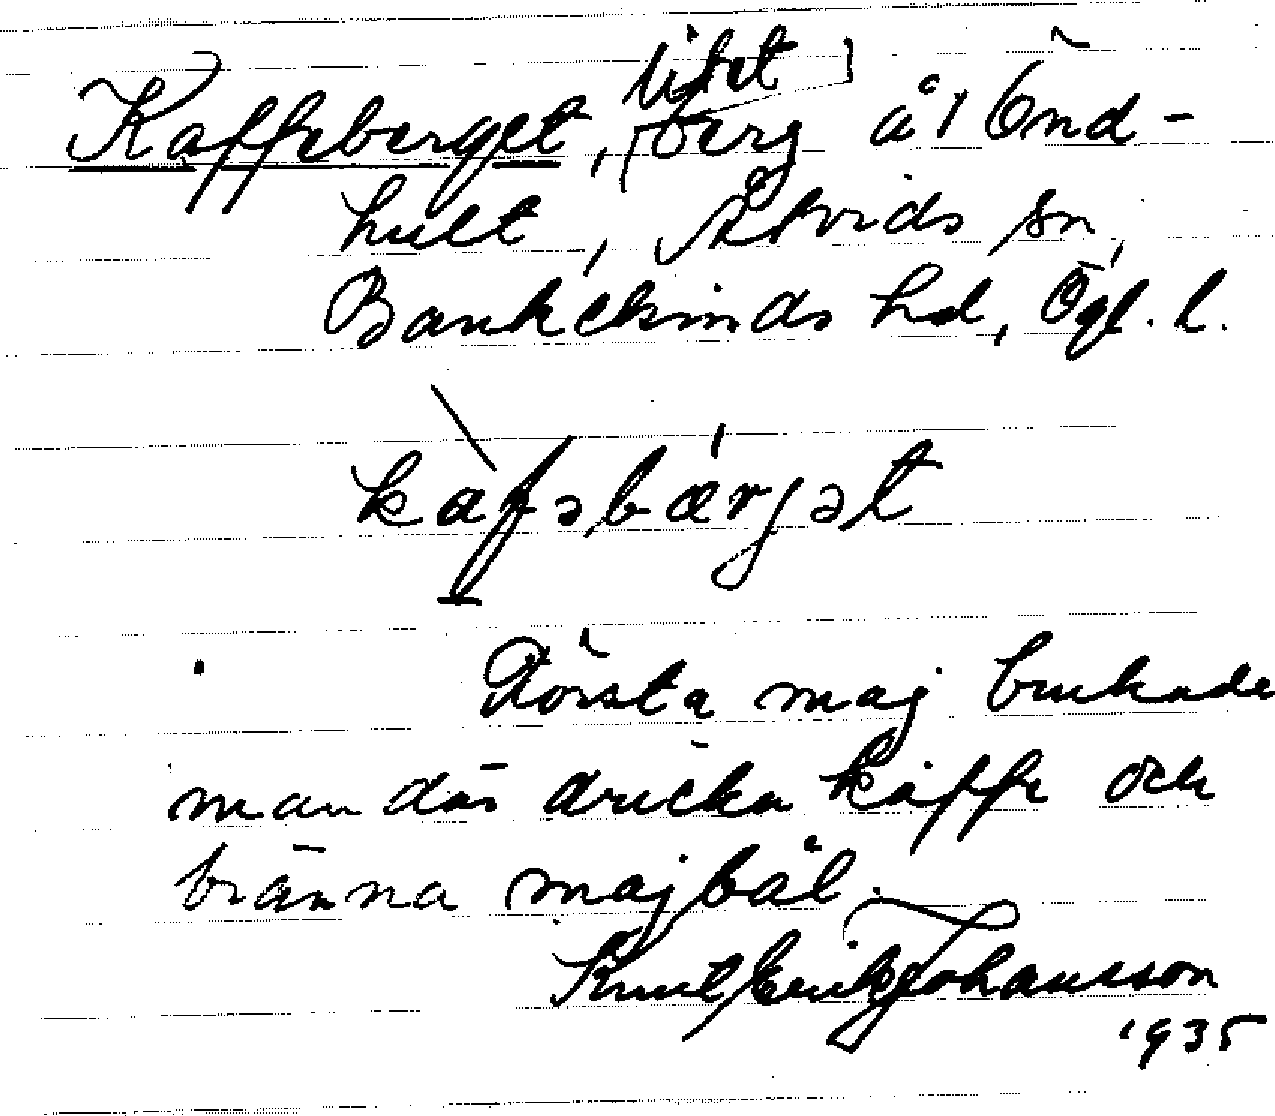 Kaffeberget, [litet] berg å Önd-
hult, Åtvids sn,
Bankekinds hd, Ögl. l.
kafəbærjət
Första maj brukade
man där dricka kaffe och
bränna majbål.
Knut Erik Johansson
1935